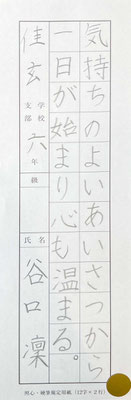 気持ちのよいあいさつから
一日が始まり心も温まる。
佳玄
学校
支部
六年級
氏名
谷口凜
硬心・硬筆検定用紙(12字×2行)